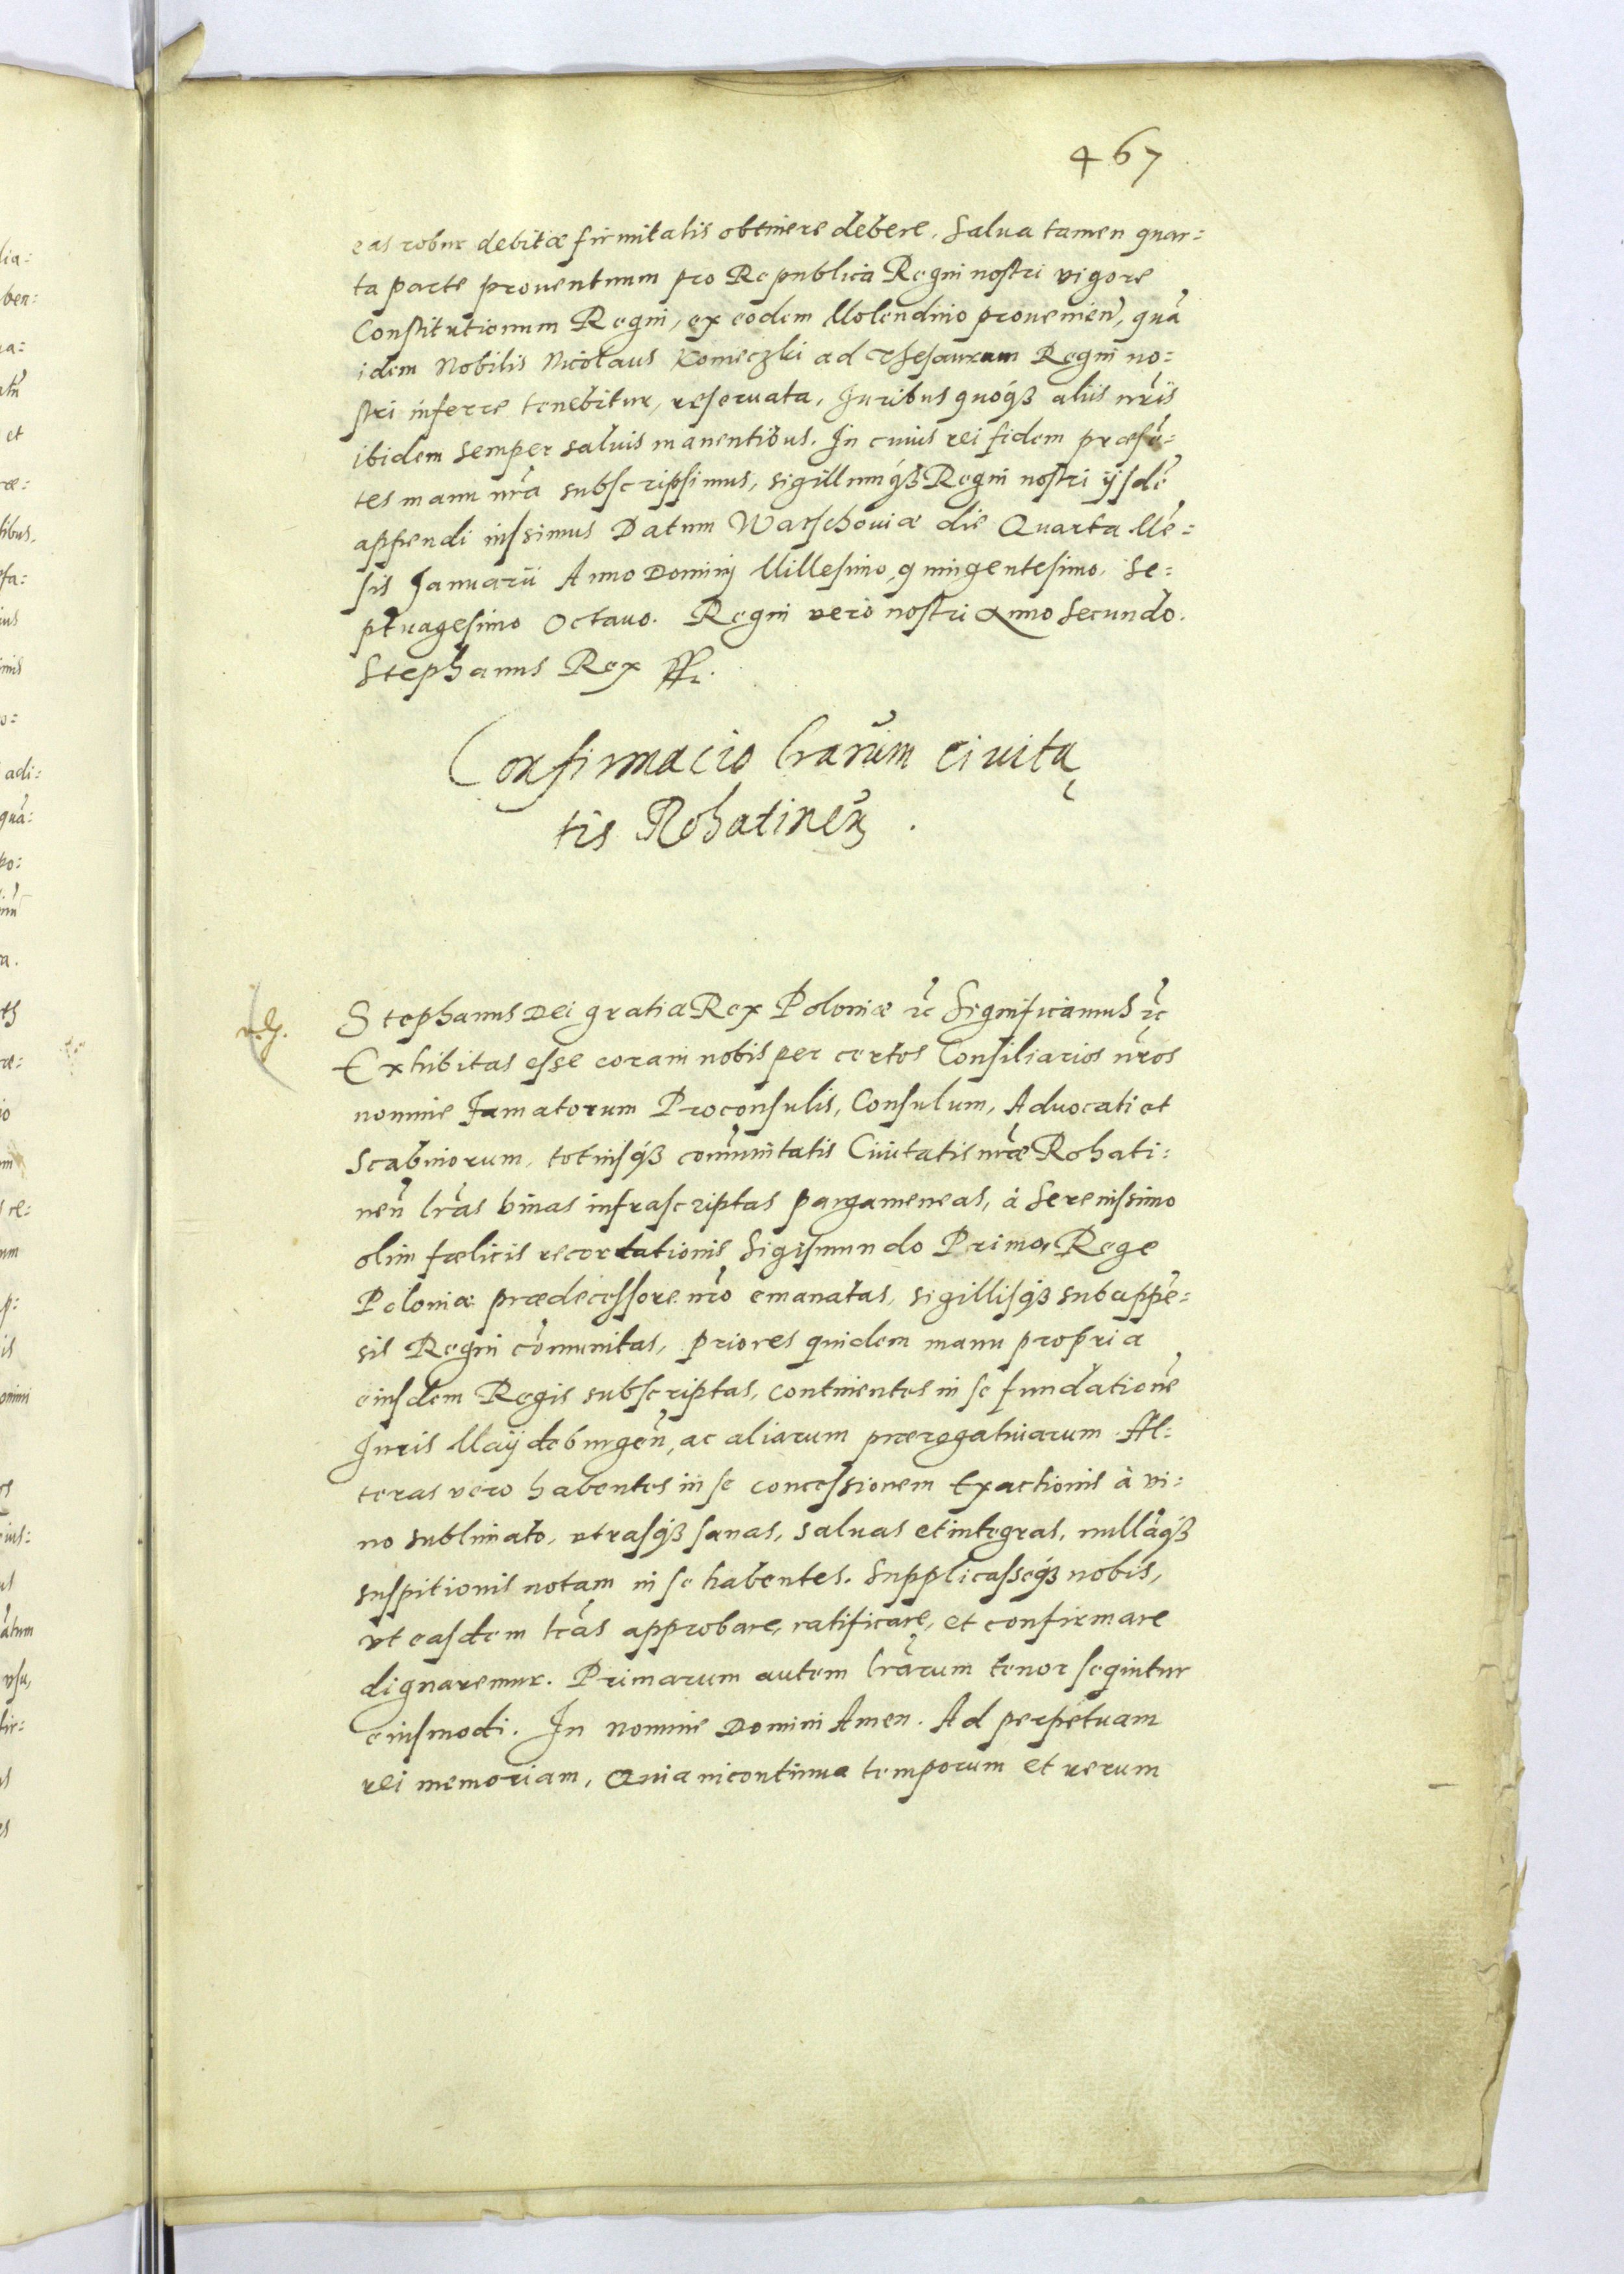 467
eas robur debitæ firmitatis obtinere debere. Salua tamen quar=
ta parte prouentuum pro Republica Regni nostri vigore
Constitutionum Regni, ex eodem Molendino prouenieñ, quã
idem Nobilis Nicolaus Komeczki ad Thesaurum Regni no=
stri inferre tenebitur, reseruata, Iuribus quoqȝ aliis nr̃is
ibidem semper saluis manentibus. In cuius rei fidem præsẽ=
tes manu nr̃a subscripsimus, sigillumqȝ Regni nostri ijsdẽ
appendi iussimus Datum Warschouiæ die Quarta Mẽ=
sis Januarii Anno Dominj Millesimo, quingentesimo, Se=
ptuagesimo Octauo. Regni vero nostri Anno Secundo.
Stephanus Rex
Confirmacio lr̃arum ciuita
tis Rohatineñ.
Stephanus Dei gratia Rex Poloniæ ꝛc̃ Significamus ꝛc̃
Exhibitas esse coram nobis per certos Consiliarios nr̃os
nomine Famatorum Proconsulis, Consulum, Aduocati et
Scabinorum, totiusqȝ com̃unitatis Ciuitatis nr̃æ Rohati=
neñ lr̃as binas infrascriptas pargameneas, à Serenissimo
olim fœlicis recordationis Sigismundo Primo, Rege
Poloniæ prædecessore nr̃o emanatas, sigillisqȝ subappẽ=
sis Regni cõmunitas, priores quidem manu propria
eiusdem Regis subscriptas, continentes in se fundationẽ
Iuris Maijdeburgeñ, ac aliarum prærogatiuarum Al=
teras vero habentes in se concessionem Exactionis à vi=
no sublimato, vtrasqȝ sanas, saluas et integras, nullãqȝ
suspitionis notam in se habentes. Supplicasseqȝ nobis,
vt easdem lr̃as approbare, ratificare, et confirmare
dignaremur. Primarum autem lr̃arum tenor sequitur
eiusmodi. In nomine Domini Amen. Ad perpetuam
rei memoriam, Quia incontinua temporum et rerum